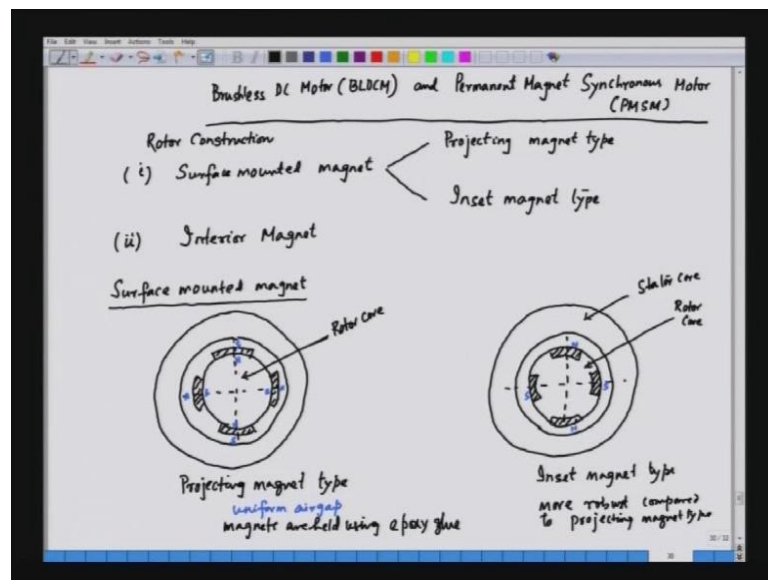 File Edit View Insert Actions Tools Help
Brushless DC Motor (BLDCM) and Permanent Magnet Synchronous Motor
(PMSM)
Rotor Construction
(i) Surface mounted magnet
Projecting magnet type
Inset magnet type
(ii) Interior Magnet
Surface mounted magnet
Rotor Core
Stator Core
Rotor
Core
Projecting magnet type
uniform airgap
magnets are held using epoxy glue
Inset magnet type
more robust compared
to projecting magnet type
30/32
30